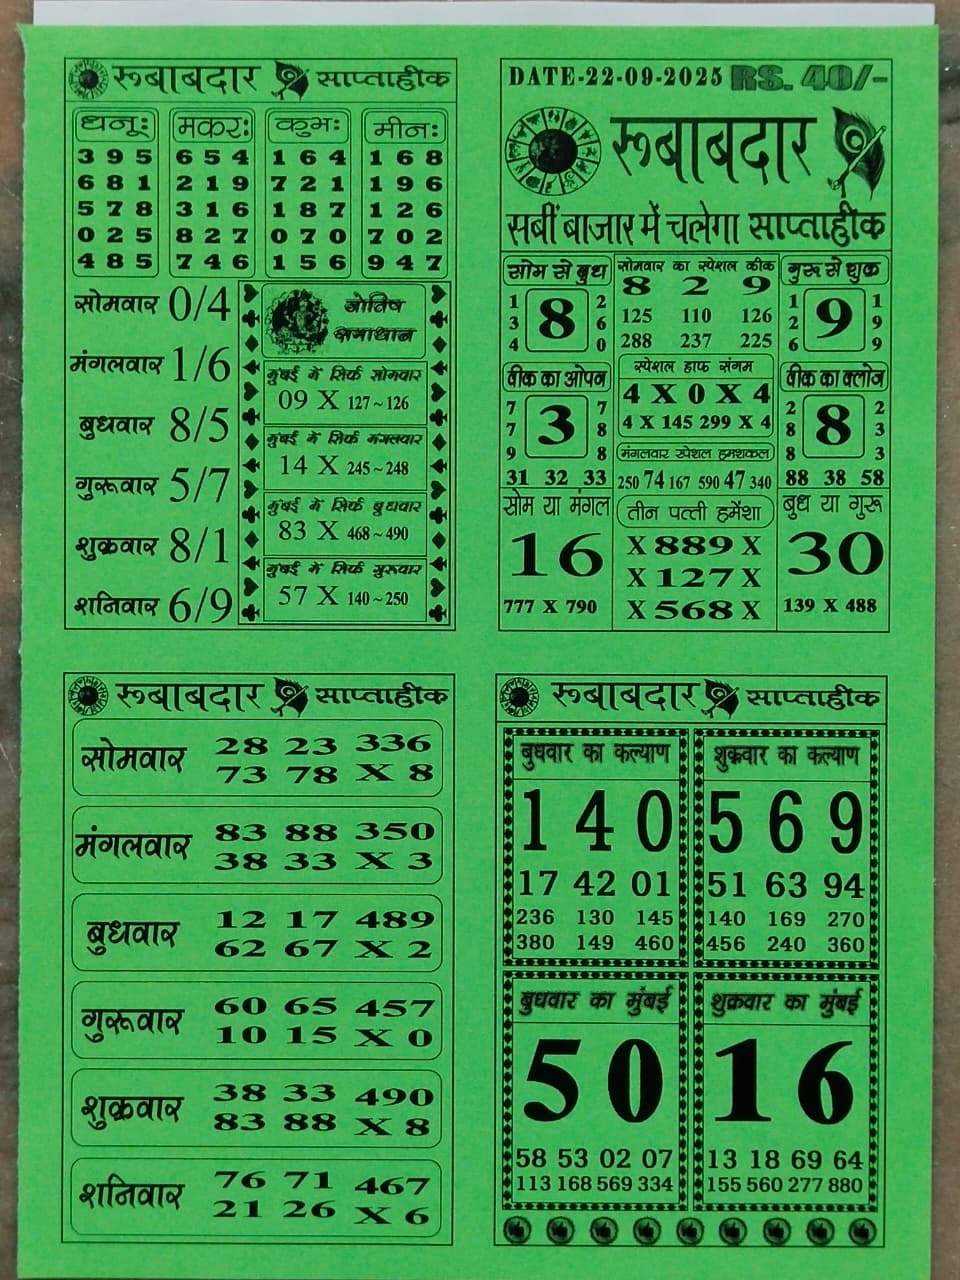 रूबाबदार साप्ताहीक
धनू: मकर: कुंभ: मीन:
3 9 5 6 5 4 1 6 4 1 6 8
6 8 1 2 1 9 7 2 1 1 9 6
5 7 8 3 1 6 1 8 7 1 2 6
0 2 5 8 2 7 0 7 0 7 0 2
4 8 5 7 4 6 1 5 6 9 4 7
सोमवार 0/4
मंगलवार 1/6
बुधवार 8/5
गुरूवार 5/7
शुक्रवार 8/1
शनिवार 6/9
जोतिष
समाधान
मुंबई में सिर्फ सोमवार
09 X 127~126
मुंबई में सिर्फ मंगलवार
14 X 245~248
मुंबई में सिर्फ बुधवार
83 X 468~490
मुंबई में सिर्फ गुरूवार
57 X 140~250
DATE-22-09-2025 RS. 40/-
रूबाबदार
सबीं बाजार में चलेगा साप्ताहीक
सोम से बुध
1 2
3 8 6
4 0
सोमवार का स्पेशल कीक
8 2 9
125 110 126
288 237 225
गुरू से शुक्र
1 1
2 9 9
6 9
वीक का ओपन
7 7
7 3 8
9 8
31 32 33
स्पेशल हाफ संगम
4 X 0 X 4
4 X 145 299 X 4
मंगलवार स्पेशल हमशकल
250 74 167 590 47 340
वीक का क्लोज
2 2
8 8 3
8 3
88 38 58
सोम या मंगल
16
777 X 790
तीन पत्ती हमेंशा
X 889 X
X 127 X
X 568 X
बुध या गुरू
30
139 X 488
रूबाबदार साप्ताहीक
सोमवार 28 23 336
73 78 X 8
मंगलवार 83 88 350
38 33 X 3
बुधवार 12 17 489
62 67 X 2
गुरूवार 60 65 457
10 15 X 0
शुक्रवार 38 33 490
83 88 X 8
शनिवार 76 71 467
21 26 X 6
रूबाबदार साप्ताहीक
बुधवार का कल्याण
1 4 0
17 42 01
236 130 145
380 149 460
शुक्रवार का कल्याण
5 6 9
51 63 94
140 169 270
456 240 360
बुधवार का मुंबई
50
58 53 02 07
113 168 569 334
शुक्रवार का मुंबई
16
13 18 69 64
155 560 277 880